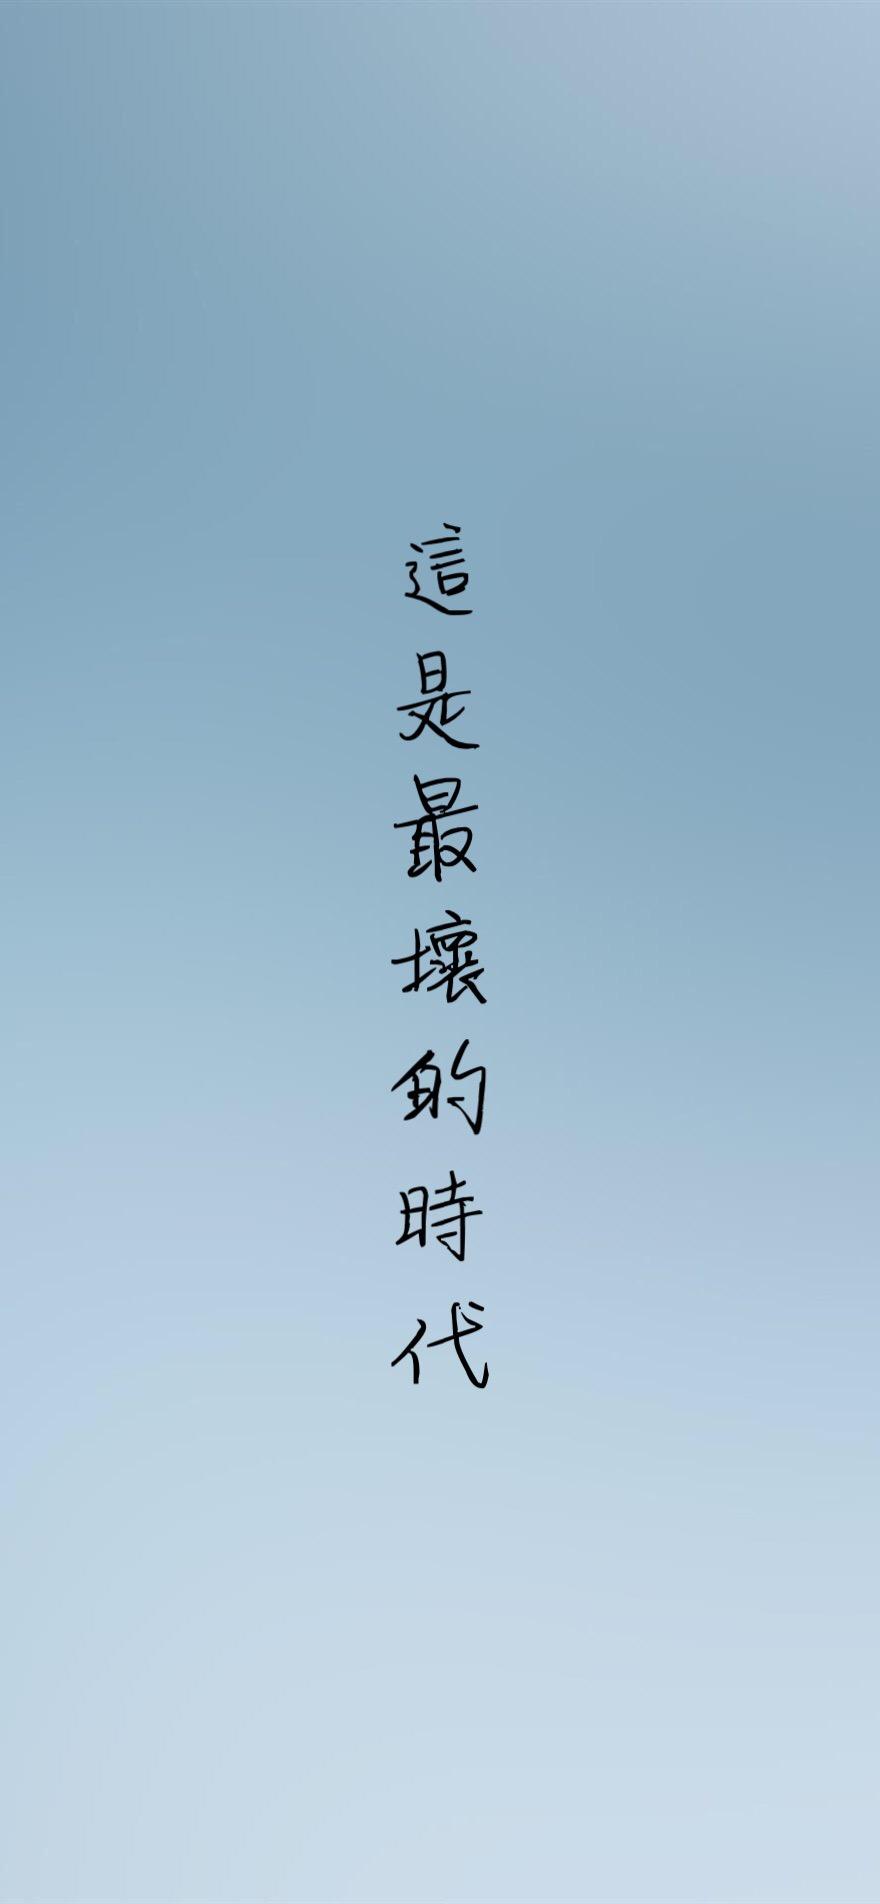 這是最壞的時代